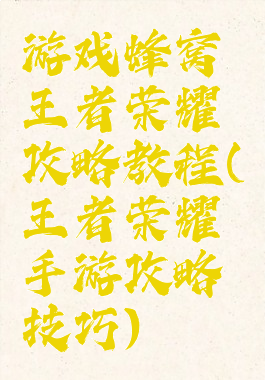 游戏蜂窝
王者荣耀
攻略教程(
王者荣耀
手游攻略
技巧)